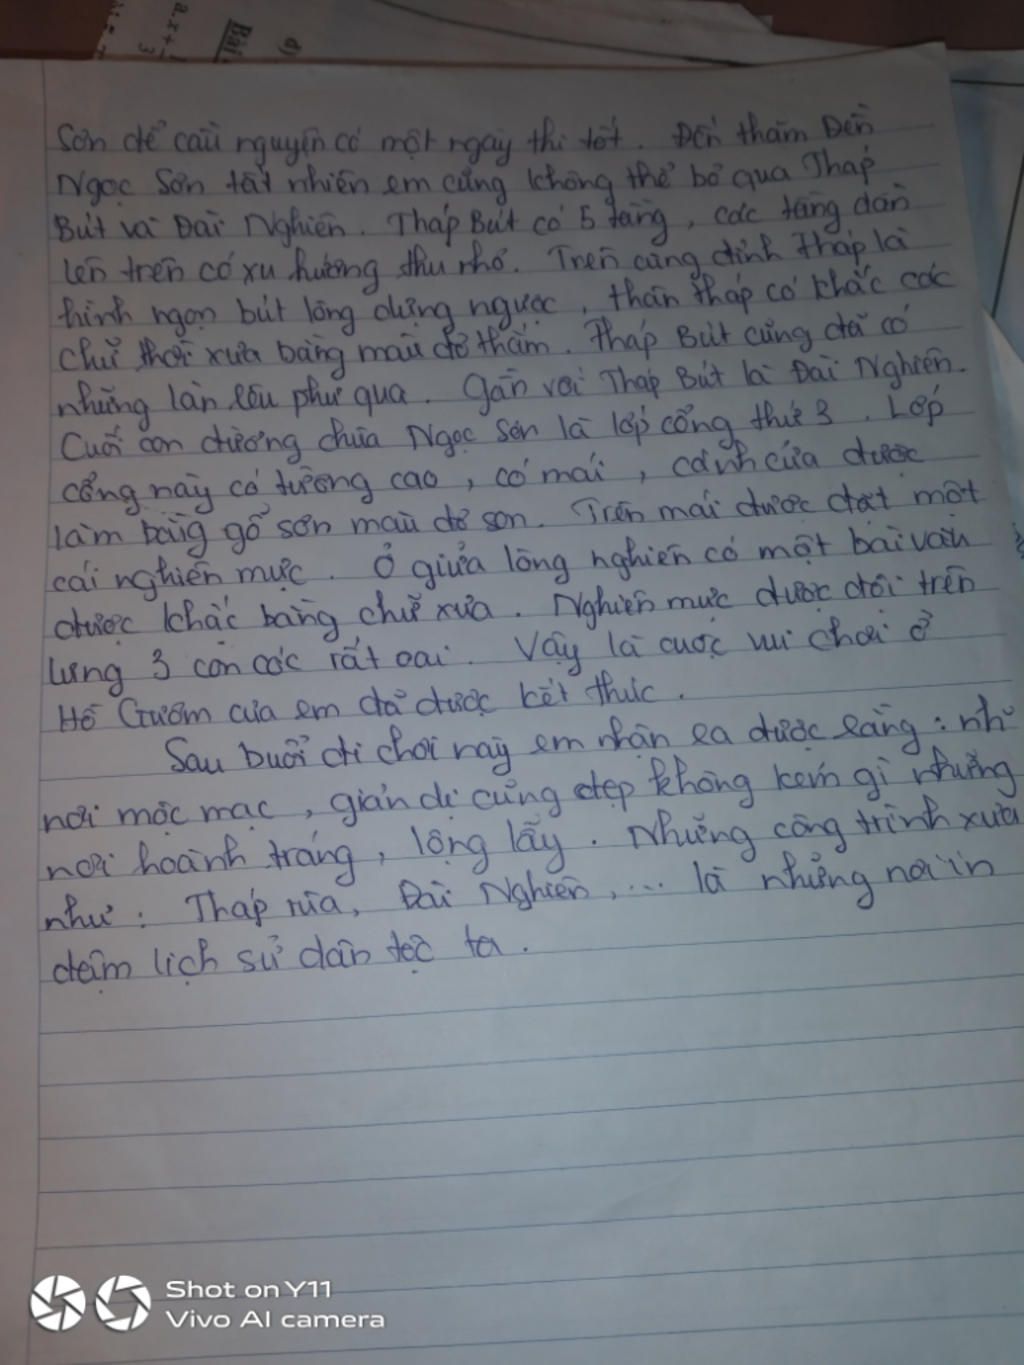 a.x+
3
Bài
d)
Sơn để cầu nguyện có một ngày thi tốt. Đến thăm Đền
Ngọc Sơn tất nhiên em cũng không thể bỏ qua Tháp
Bút và Đài Nghiên. Tháp Bút có 5 tầng, các tầng dần
lên trên có xu hướng thu nhỏ. Trên cùng đỉnh tháp là
hình ngọn bút lông dựng ngược, thân tháp có khắc các
chữ thời xưa bằng màu đỏ thắm. Tháp Bút cũng đã có
những lần lêu phư qua. Gần với Tháp Bút là Đài Nghiên.
Cuối con đường chùa Ngọc Sơn là lớp cổng thứ 3. Lớp
cổng này có tường cao, có mái, cánh cửa được
làm bằng gỗ sơn màu đỏ son. Trên mái được đặt một
cái nghiên mực. Ở giữa lòng nghiên có một bài văn
được khắc bằng chữ xưa. Nghiên mực được đội trên
lưng 3 con cóc rất oai. Vậy là cuộc vui chơi ở
Hồ Gươm của em đã được kết thúc.
Sau buổi đi chơi này em nhận ra được rằng: nhữ
nơi mộc mạc, giản dị cũng đẹp không kém gì những
nơi hoành tráng, lộng lẫy. Những công trình xưa
như: Tháp rùa, Đài Nghiên, ... là những nơi in
đậm lịch sử dân tộc ta.
Shot on Y11
Vivo AI camera